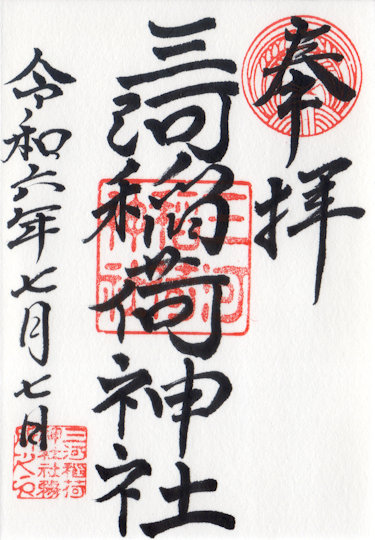 奉拝
三河稲荷神社
令和六年七月七日
三河稲荷神社
三河稲荷
神社社務